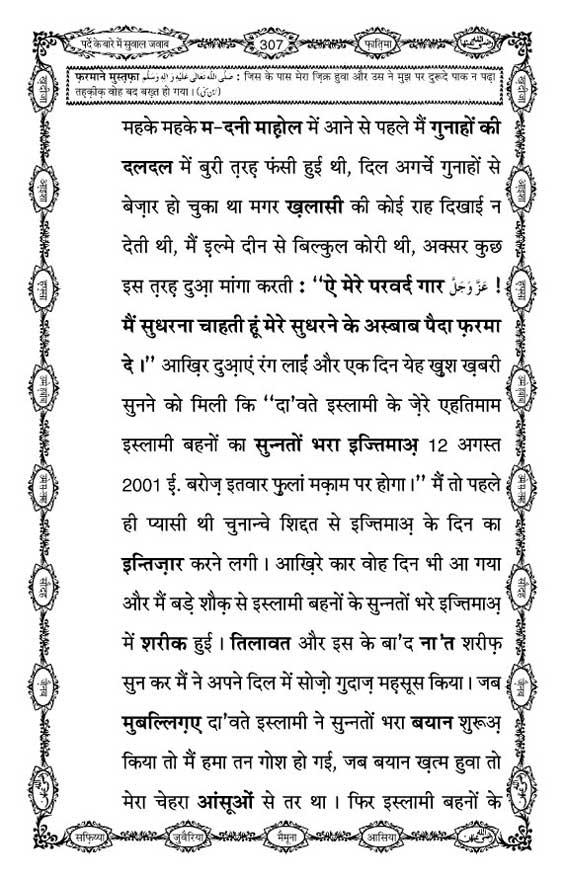 पर्दे के बारे में सुवाल जवाब
307
फ़ातिमा
फ़रमाने मुस्तफ़ा صَلَّى اللّٰهُ تَعَالٰى عَلَيْهِ وَاٰلِهٖ وَسَلَّم : जिस के पास मेरा ज़िक्र हुवा और उस ने मुझ पर दुरूदे पाक न पढ़ा
तह़क़ीक़ वोह बद बख़्त हो गया।
महके महके म-दनी माह़ोल में आने से पहले मैं गुनाहों की
दलदल में बुरी त़रह़ फंसी हुई थी, दिल अगर्चे गुनाहों से
बेज़ार हो चुका था मगर ख़लासी की कोई राह दिखाई न
देती थी, मैं इ़ल्मे दीन से बिल्कुल कोरी थी, अक्सर कुछ
इस त़रह़ दुआ़ मांगा करती : “ऐ मेरे परवर्द गार عَزَّ وَجَلَّ !
मैं सुधरना चाहती हूं मेरे सुधरने के अस्बाब पैदा फ़रमा
दे।” आख़िर दुआ़एं रंग लाईं और एक दिन येह ख़ुश ख़बरी
सुनने को मिली कि “दा'वते इस्लामी के ज़ेरे एहतिमाम
इस्लामी बहनों का सुन्नतों भरा इज्तिमाअ़ 12 अगस्त
2001 ई. बरोज़ इतवार फुलां मक़ाम पर होगा।” मैं तो पहले
ही प्यासी थी चुनान्चे शिद्दत से इज्तिमाअ़ के दिन का
इन्तिज़ार करने लगी। आख़िरे कार वोह दिन भी आ गया
और मैं बड़े शौक़ से इस्लामी बहनों के सुन्नतों भरे इज्तिमाअ़
में शरीक हुई। तिलावत और इस के बा'द ना'त शरीफ़
सुन कर मैं ने अपने दिल में सोज़ो गुदाज़ मह़सूस किया। जब
मुबल्लिग़ए दा'वते इस्लामी ने सुन्नतों भरा बयान शुरूअ़
किया तो मैं हमा तन गोश हो गई, जब बयान ख़त्म हुवा तो
मेरा चेहरा आंसूओं से तर था। फिर इस्लामी बहनों के
सफ़िय्या
जुवैरिया
मैमूना
आसिया